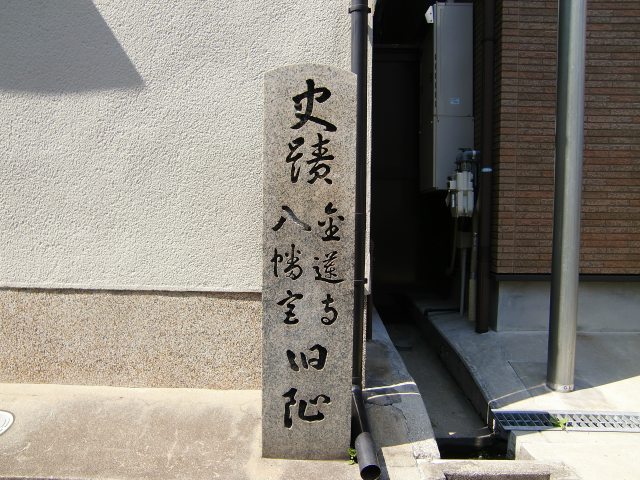 史蹟
金蓮寺
八幡宮
旧趾